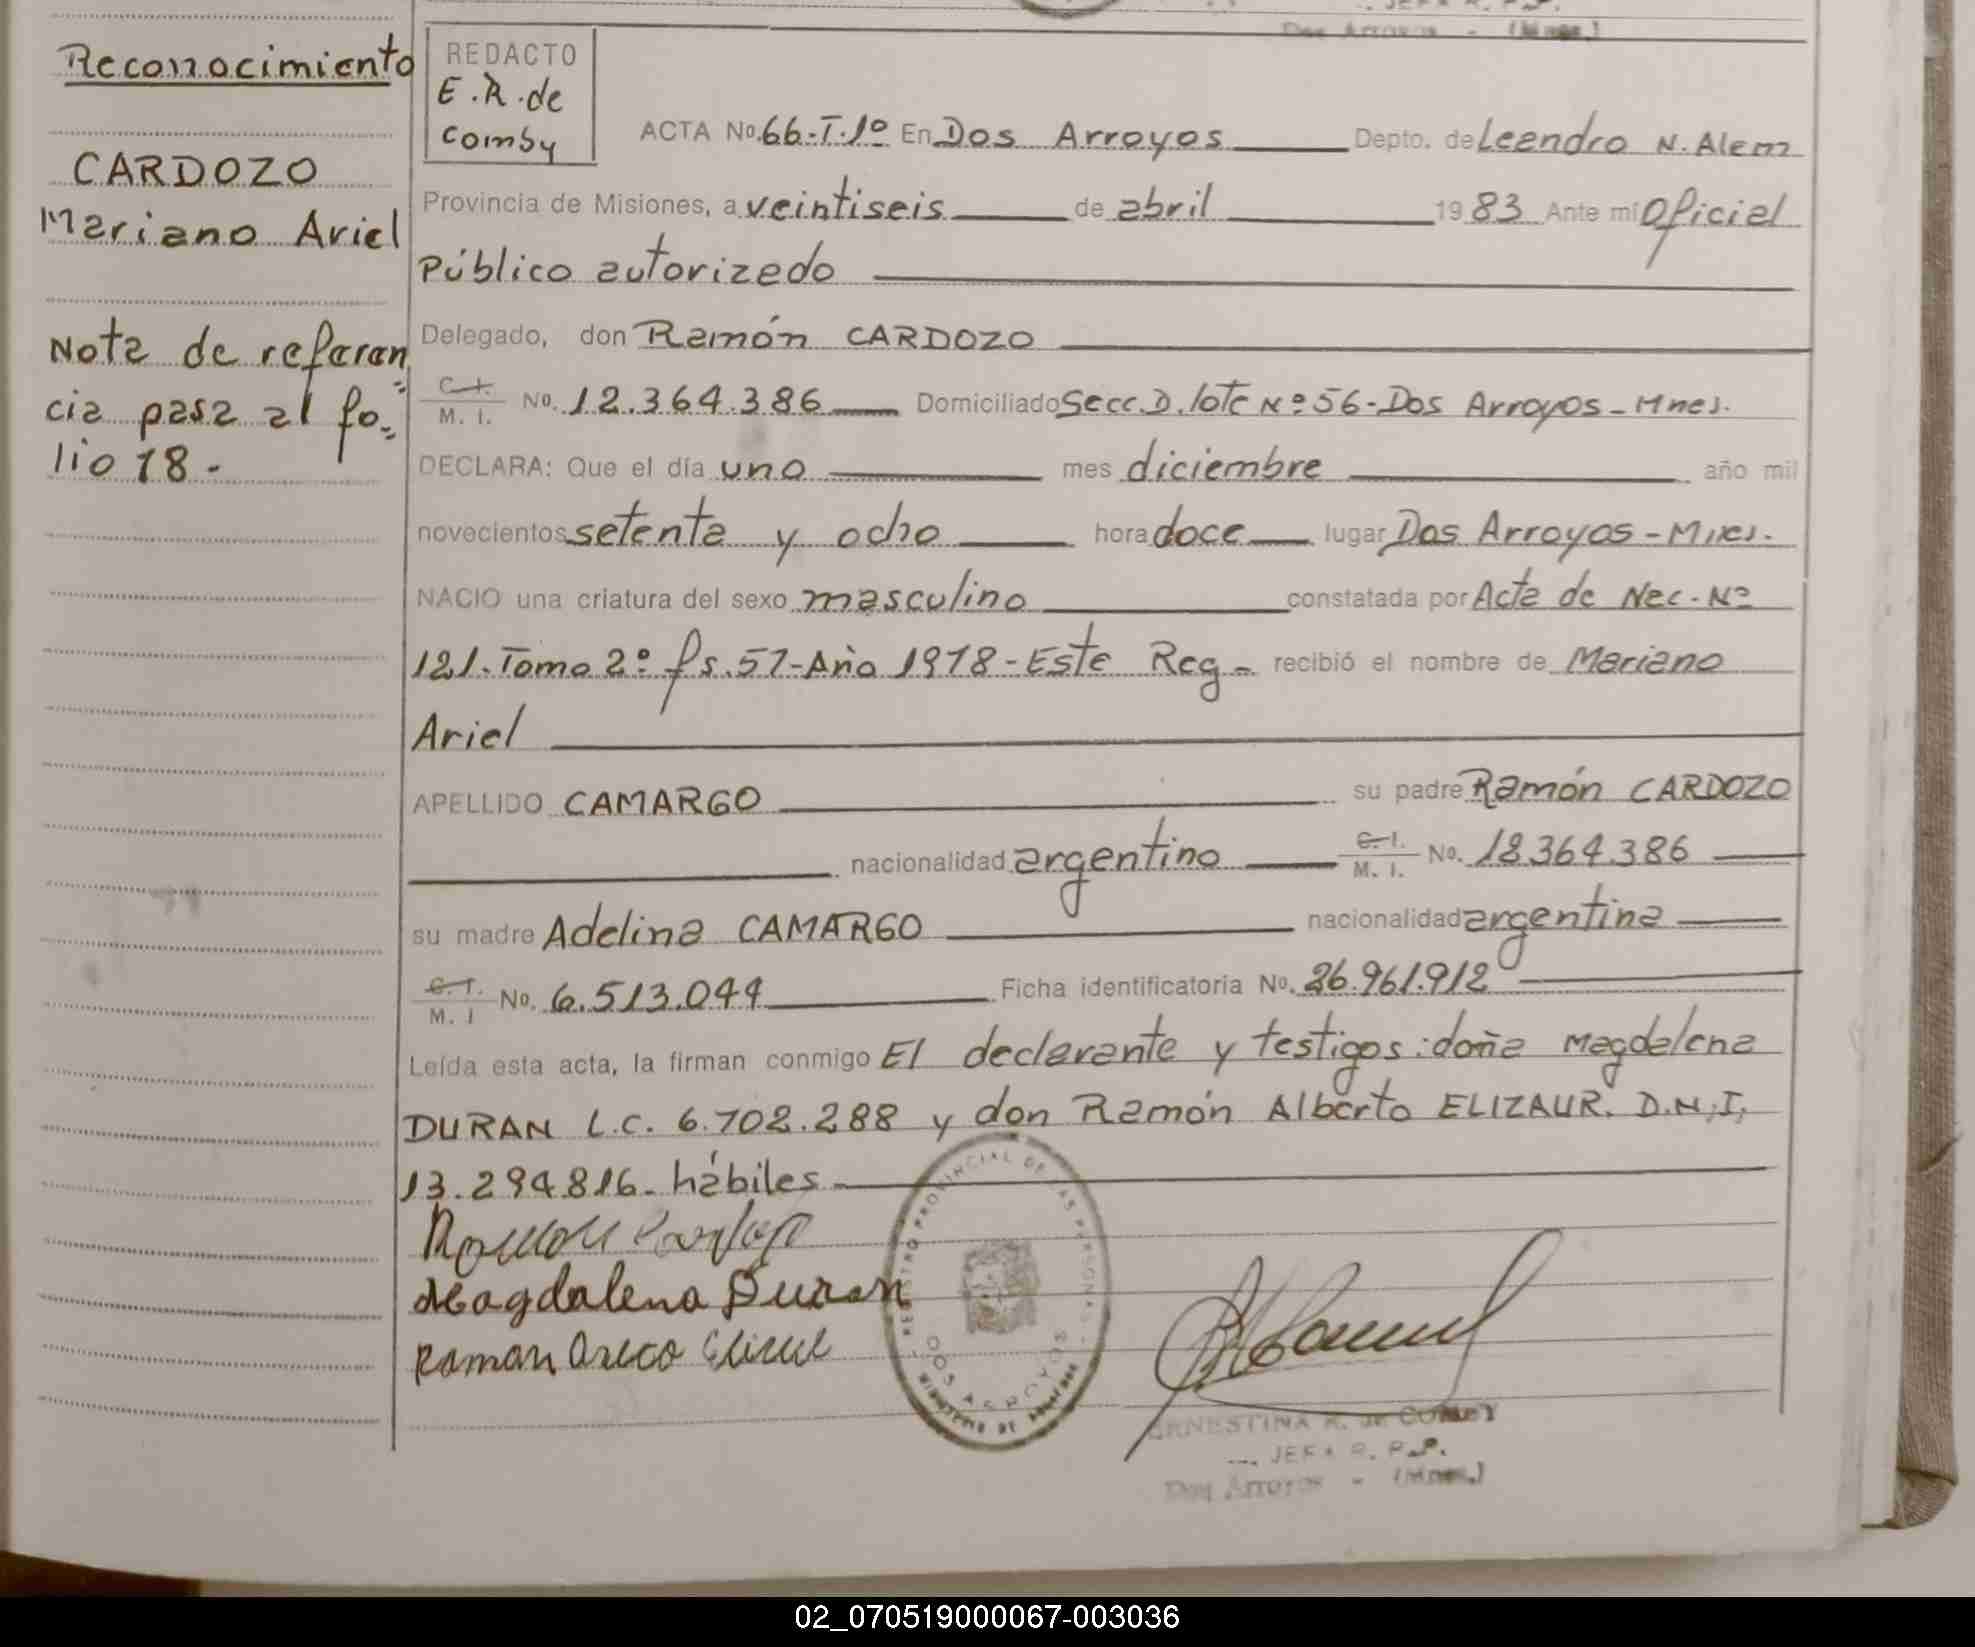 Reconocimiento
CARDOZO
Mariano Ariel
Nota de referen
cia pasa al fo=
lio 18.-
REDACTO
E.R. de
Comby
ACTA No. 66-T-1º En Dos Arroyos Depto. de Leandro N. Alem
Provincia de Misiones, a veintiseis de abril 1983 Ante mi Oficial
Público autorizado
Delegado, don Ramón CARDOZO
C.I.
M. I. No. 12.364.386 Domiciliado Secc. D. lote Nº 56-Dos Arroyos-Mnes.
DECLARA: Que el día uno mes diciembre año mil
novecientos setenta y ocho hora doce lugar Dos Arroyos-Mnes.
NACIO una criatura del sexo masculino constatada por Acta de Nac. Nº
121-Tomo 2º fs. 57-Año 1978-Este Reg- recibió el nombre de Mariano
Ariel
APELLIDO CAMARGO su padre Ramón CARDOZO
nacionalidad argentino C.I. M. I. No. 18.364.386
su madre Adelina CAMARGO nacionalidad argentina
C.I.
M. I No. 6.513.044 Ficha identificatoria No. 26.961.912
Leída esta acta, la firman conmigo El declarante y testigos: doña Magdalena
DURAN L.C. 6.702.288 y don Ramón Alberto ELIZAUR. D.N.I.
13.294.816- hábiles
Magdalena Duran
Ramon
REGISTRO PROVINCIAL DE LAS PERSONAS
DOS ARROYOS
MINISTERIO DE GOBIERNO
ERNESTINA R. de COMBY
JEFA R. P.P.
Dos Arroyos - (Mnes.)
02_070519000067-003036